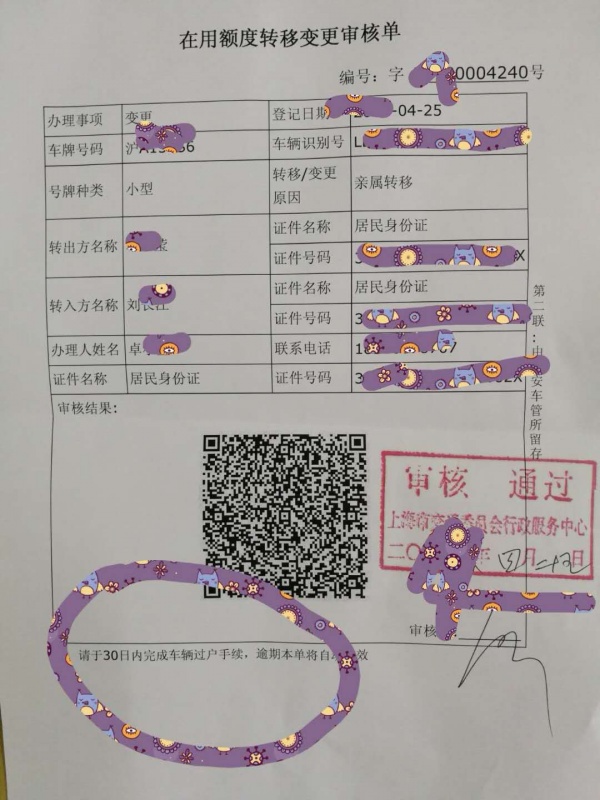 在用额度转移变更审核单
编号: 字 0004240号
办理事项 变更 登记日期 -04-25
车牌号码 沪A 6 车辆识别号 L
号牌种类 小型 转移/变更原因 亲属转移
转出方名称 证件名称 居民身份证
证件号码 X
转入方名称 刘 证件名称 居民身份证
证件号码 3
办理人姓名 卓 联系电话 1
证件名称 居民身份证 证件号码 3
审核结果:
第二联:由 安车管所留存
审核 通过
上海市 委员会行政服务中心
二〇 年 四月二十五日
审核
请于30日内完成车辆过户手续，逾期本单将自 效